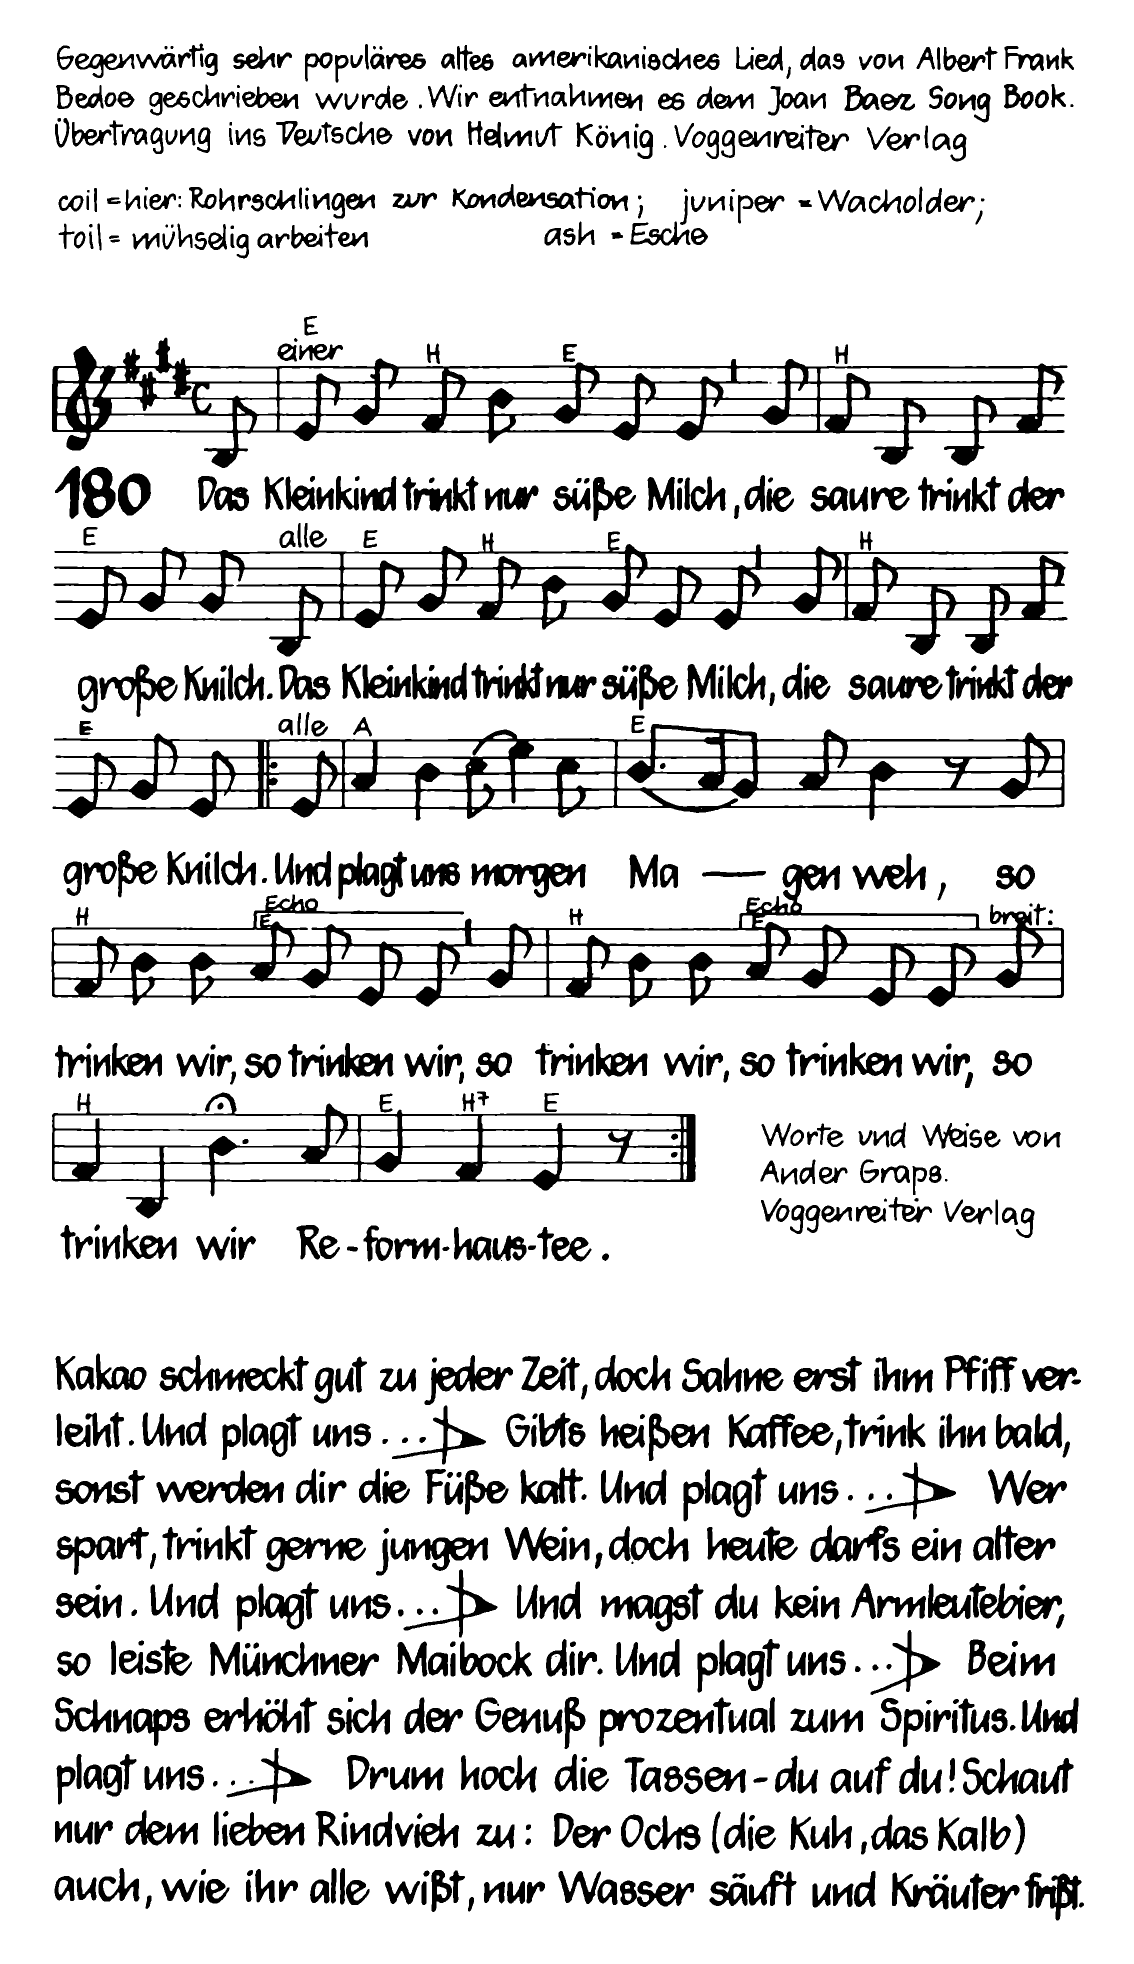 Gegenwärtig sehr populäres altes amerikanisches Lied, das von Albert Frank
Bedoe geschrieben wurde. Wir entnahmen es dem Joan Baez Song Book.
Übertragung ins Deutsche von Helmut König. Voggenreiter Verlag
coil = hier: Rohrschlingen zur Kondensation; juniper = Wacholder;
toil = mühselig arbeiten ash = Esche
E
einer H E H
180 Das Kleinkind trinkt nur süße Milch, die saure trinkt der
E alle E H E H
große Knilch. Das Kleinkind trinkt nur süße Milch, die saure trinkt der
E alle A E
große Knilch. Und plagt uns morgen Ma — gen weh, so
H Echo E H Echo E breit:
trinken wir, so trinken wir, so trinken wir, so trinken wir, so
H E H7 E
trinken wir Re-form-haus-tee.
Worte und Weise von
Ander Graps.
Voggenreiter Verlag
Kakao schmeckt gut zu jeder Zeit, doch Sahne erst ihm Pfiff ver-
leiht. Und plagt uns... Gibts heißen Kaffee, trink ihn bald,
sonst werden dir die Füße kalt. Und plagt uns... Wer
spart, trinkt gerne jungen Wein, doch heute darfs ein alter
sein. Und plagt uns... Und magst du kein Armleutebier,
so leiste Münchner Maibock dir. Und plagt uns... Beim
Schnaps erhöht sich der Genuß prozentual zum Spiritus. Und
plagt uns... Drum hoch die Tassen - du auf du! Schaut
nur dem lieben Rindvieh zu: Der Ochs (die Kuh, das Kalb)
auch, wie ihr alle wißt, nur Wasser säuft und Kräuter frißt.